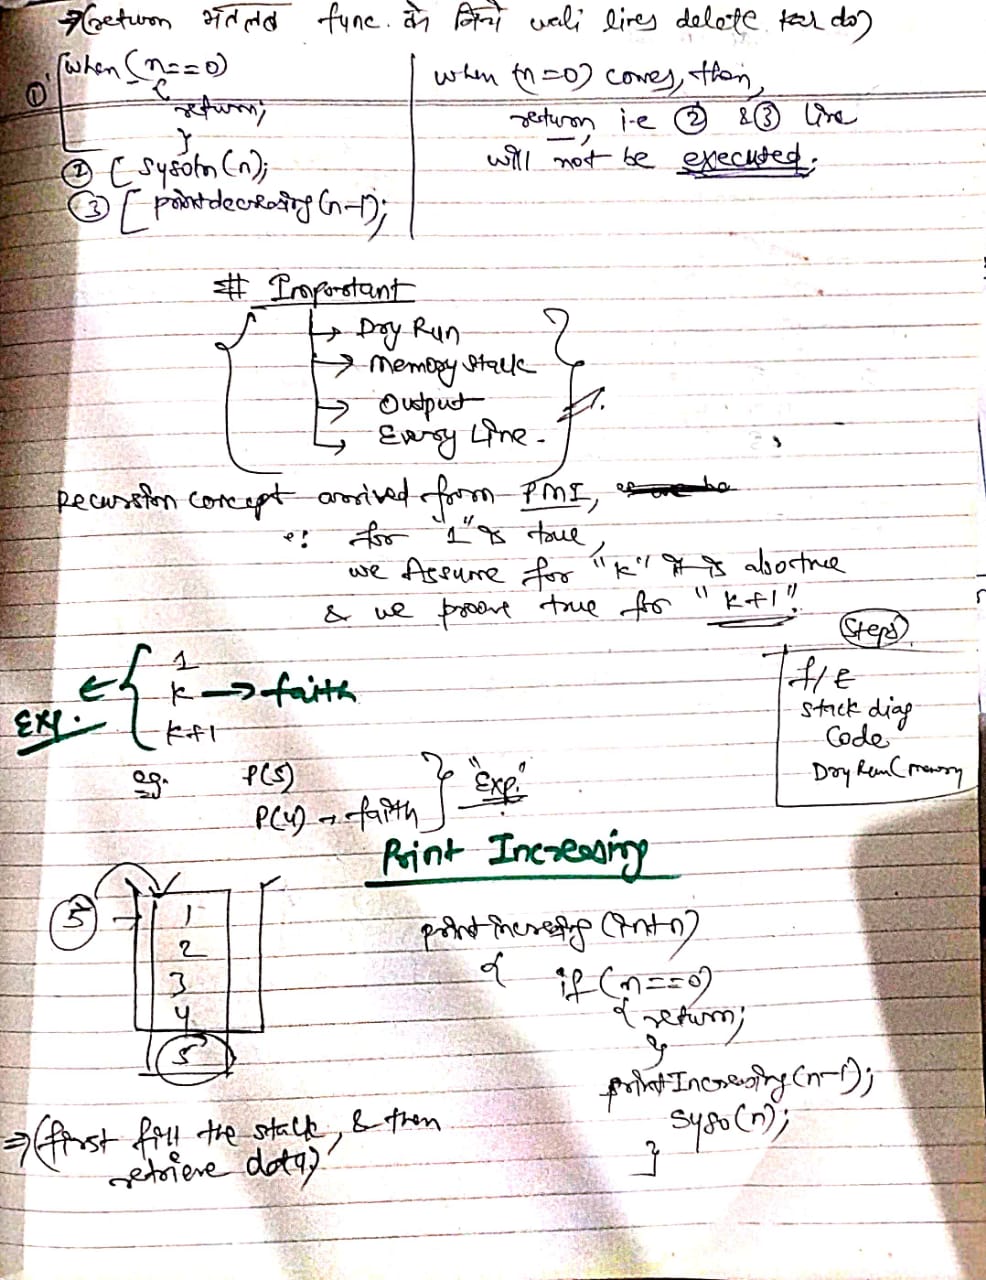 ⇒(return मतलब func. के नीचे wali lines delete kar do)
① when (n==0)
{
return;
}
② [ sysoln(n);
③ [ printdecreasing(n-1);
when (n=0) comes, then,
return, i.e ② & ③ line
will not be executed.
# Important
→ Dry Run
→ Memory Stack
→ Output
→ Every Line.
Recursion concept arrived from PMI,
for "1" is true,
we Assume for "k" it is also true
& we prove true for "k+1".
Steps
f/E
stack diag
Code
Dry Run (memory
Exp. ← { 1
k → faith
k+1
eg. P(5)
P(4) → faith } "Exp."
Print Increasing
5
1
2
3
4
5
print increasing (int n)
{ if (n==0)
{ return;
}
printIncreasing(n-1);
syso(n);
}
⇒(first fill the stack, & then
retrieve data)